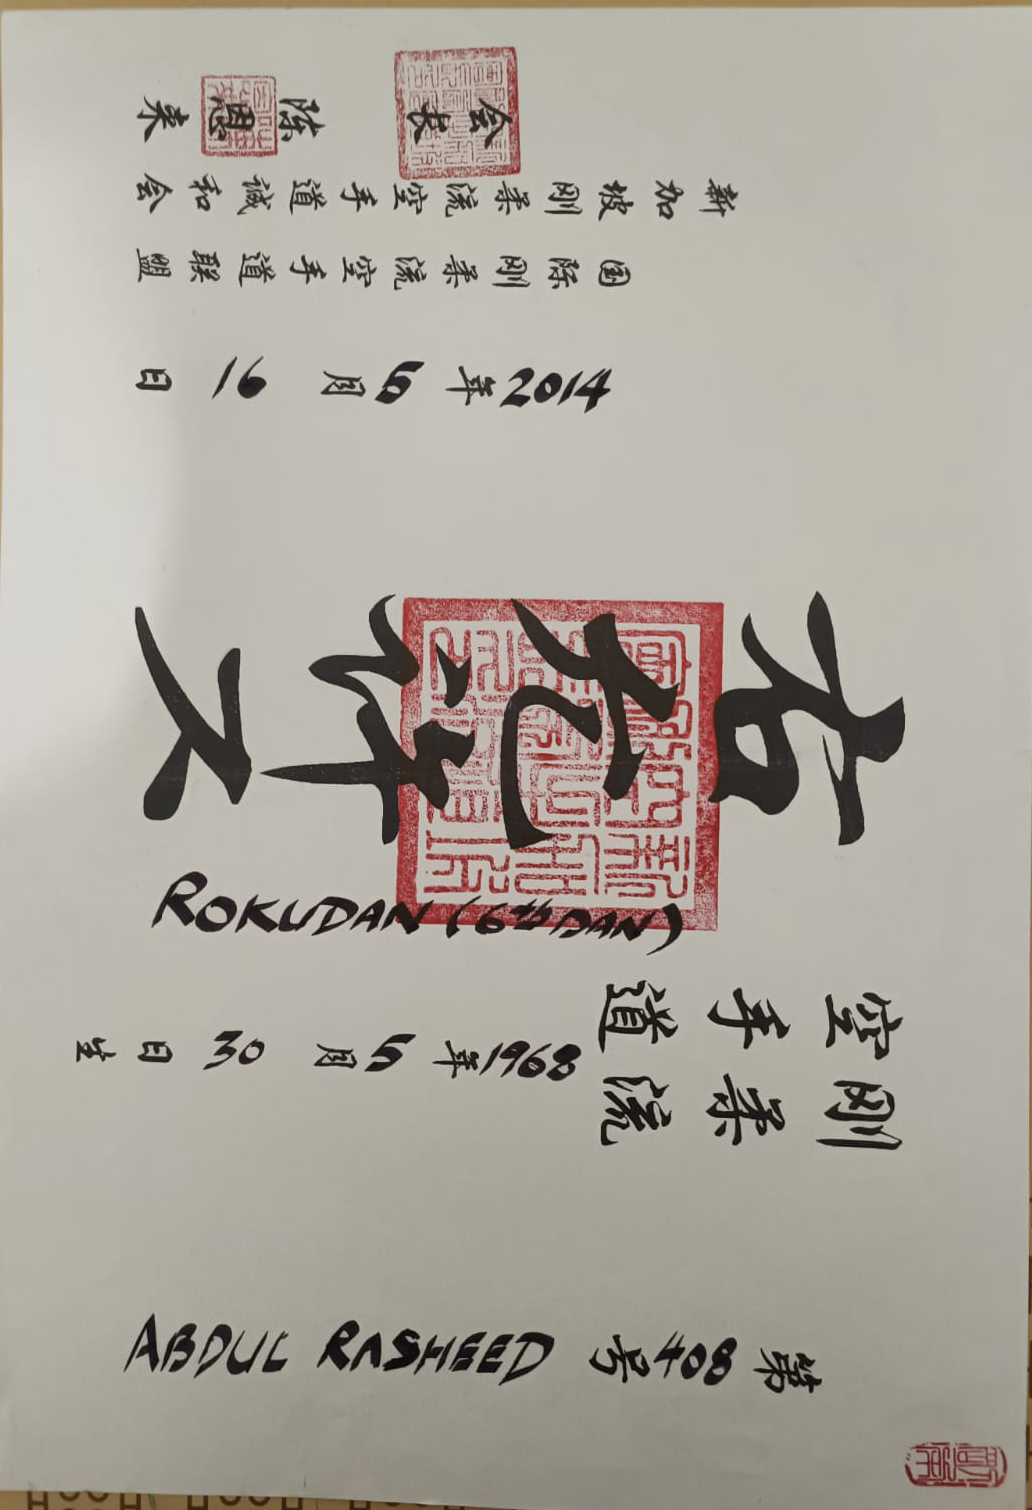 第408号 ABDUL RASHEED
剛柔流
空手道
1968年5月30日生
ROKUDAN (6th DAN)
右允許ス
2014年5月16日
国际剛柔流空手道联盟
新加坡剛柔流空手道诚和会
会长 陈恩来